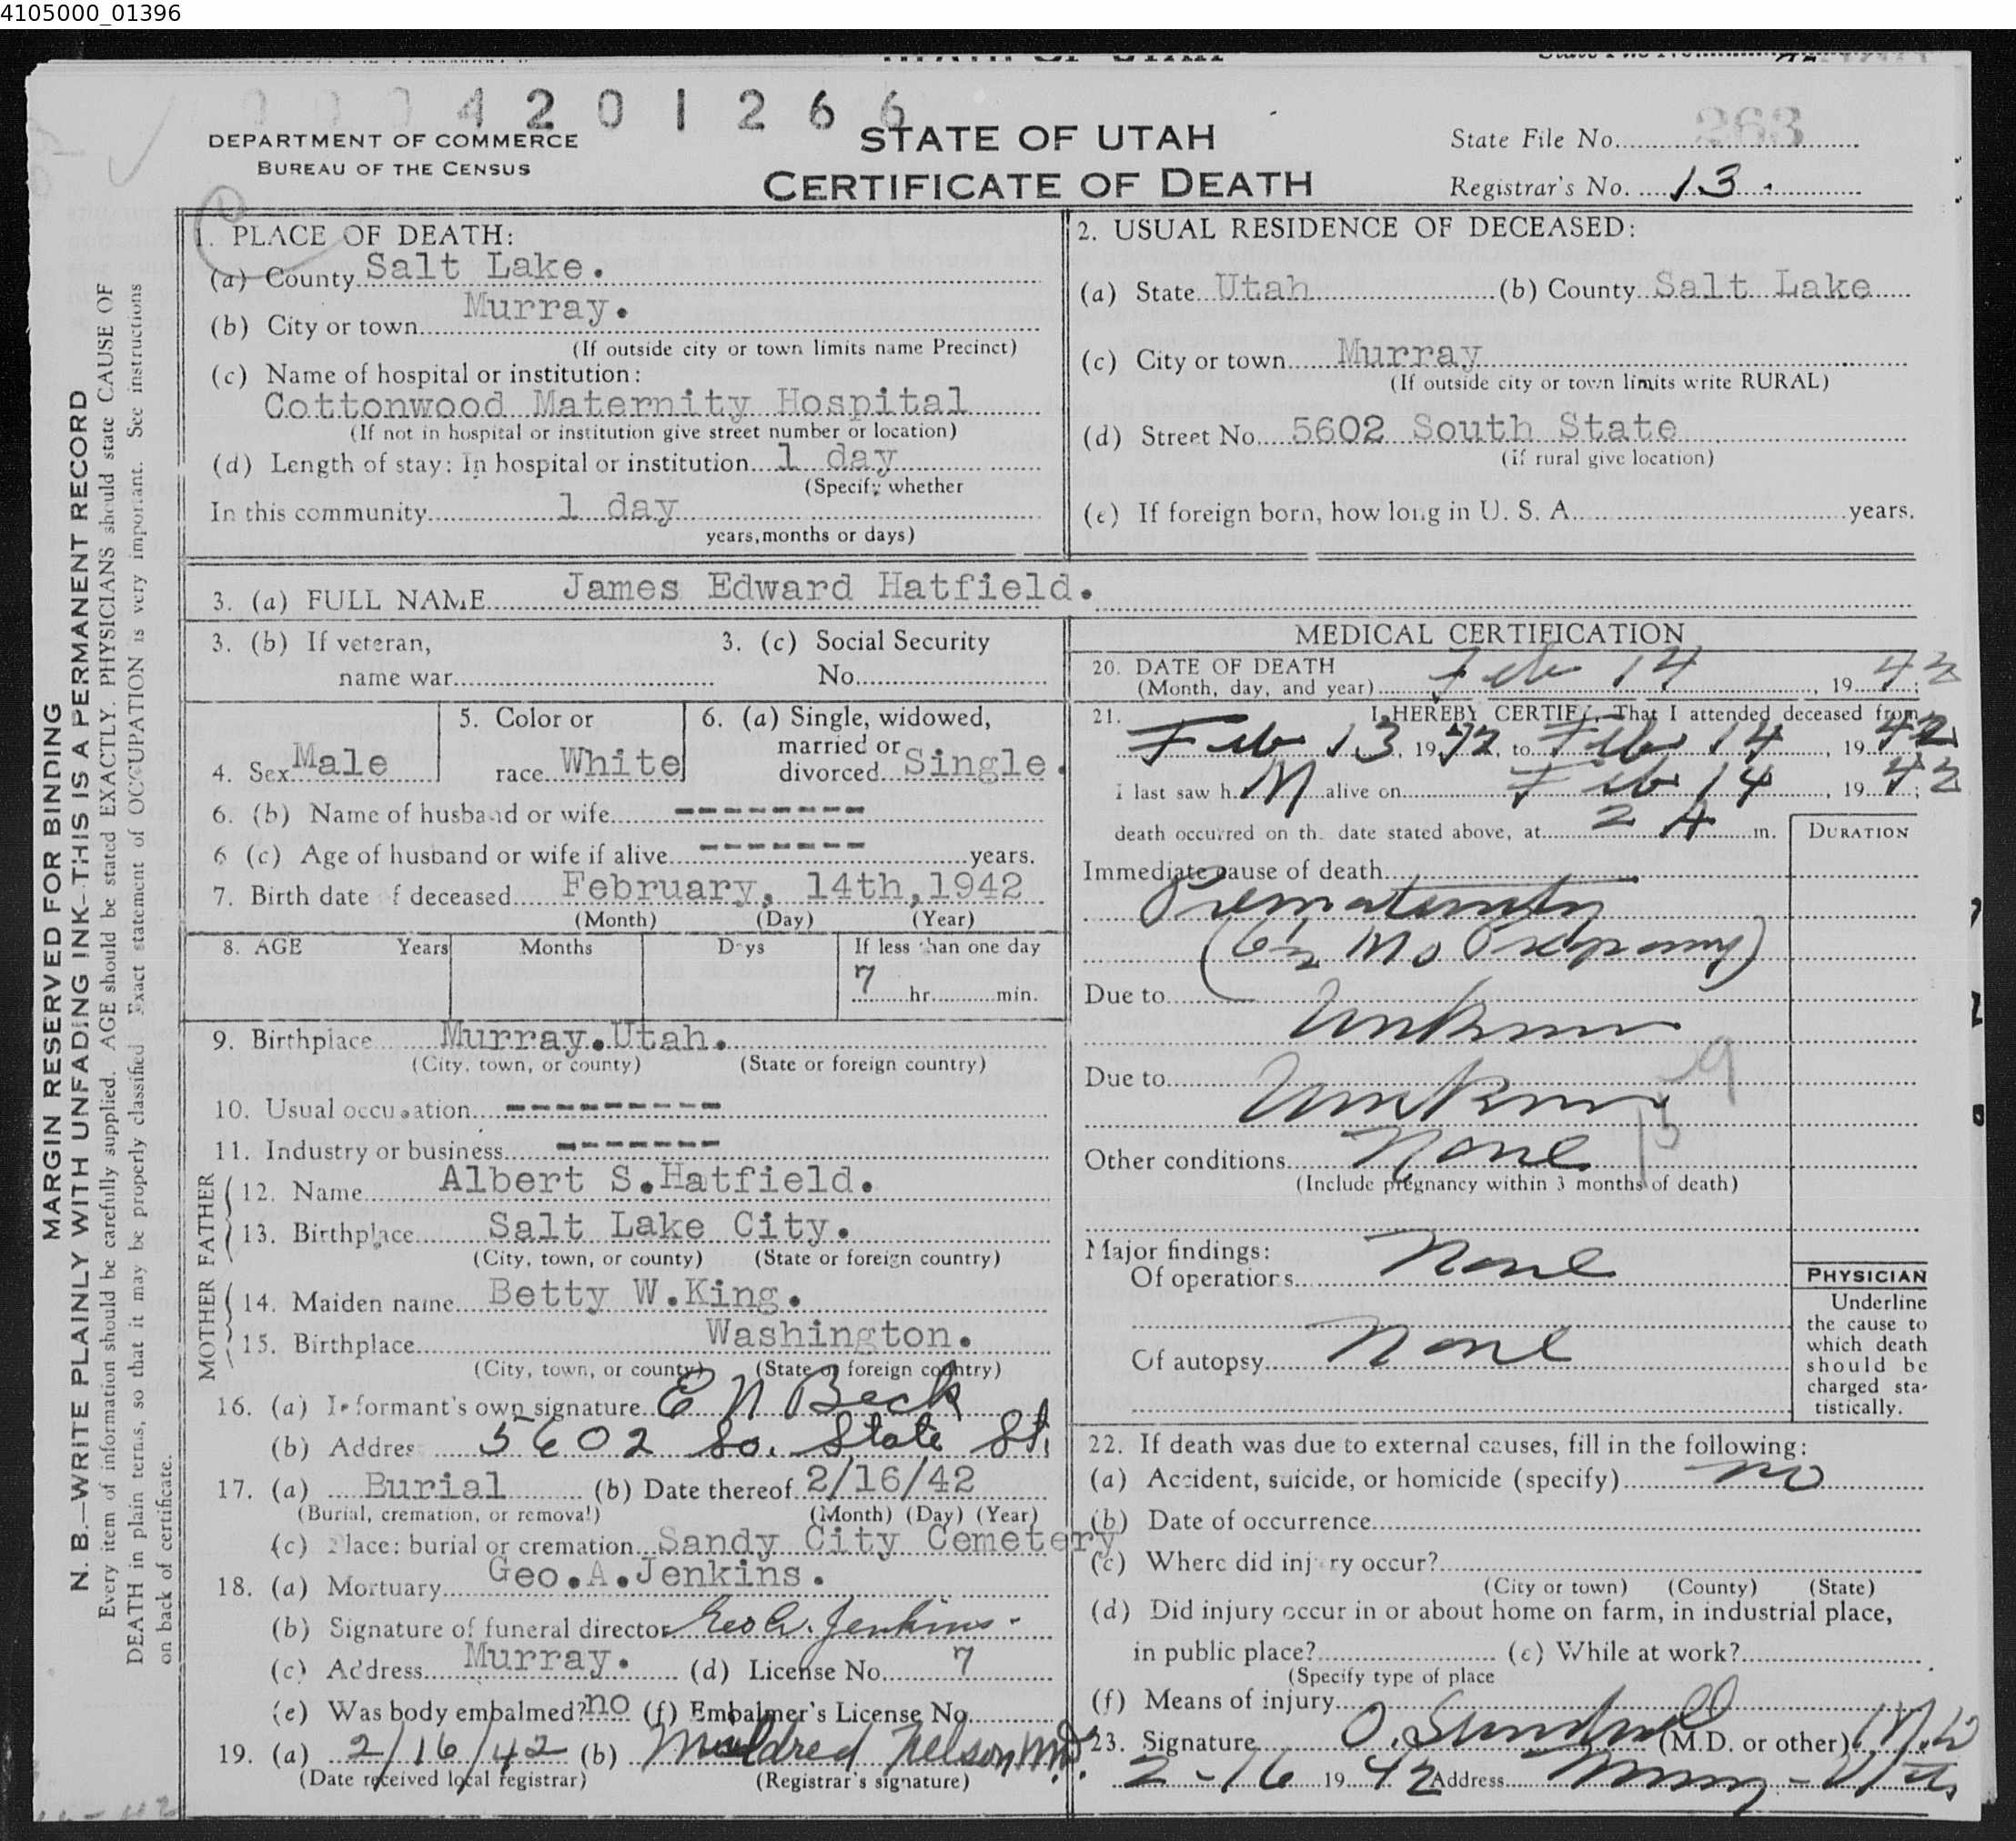 4105000_01396
4201266
DEPARTMENT OF COMMERCE
BUREAU OF THE CENSUS
STATE OF UTAH
CERTIFICATE OF DEATH
State File No. 263
Registrar's No. 13.
MARGIN RESERVED FOR BINDING
N. B.—WRITE PLAINLY WITH UNFADING INK—THIS IS A PERMANENT RECORD
Every item of information should be carefully supplied. AGE should be stated EXACTLY. PHYSICIANS should state CAUSE OF
DEATH in plain terms, so that it may be properly classified Exact statement of OCCUPATION is very important. See instructions
on back of certificate.
1. PLACE OF DEATH:
(a) County Salt Lake.
(b) City or town Murray.
(If outside city or town limits name Precinct)
(c) Name of hospital or institution:
Cottonwood Maternity Hospital
(If not in hospital or institution give street number or location)
(d) Length of stay: In hospital or institution 1 day
(Specify whether
In this community 1 day
years, months or days)
2. USUAL RESIDENCE OF DECEASED:
(a) State Utah (b) County Salt Lake
(c) City or town Murray
(If outside city or town limits write RURAL)
(d) Street No. 5602 South State
(if rural give location)
(e) If foreign born, how long in U. S. A. years.
3. (a) FULL NAME James Edward Hatfield.
3. (b) If veteran,
name war
3. (c) Social Security
No.
4. Sex Male
5. Color or
race White
6. (a) Single, widowed,
married or
divorced Single.
6. (b) Name of husband or wife --------
6 (c) Age of husband or wife if alive ------- years.
7. Birth date of deceased February, 14th, 1942
(Month) (Day) (Year)
8. AGE Years Months Days If less than one day
7 hr. min.
9. Birthplace Murray. Utah.
(City, town, or county) (State or foreign country)
10. Usual occupation ---------
11. Industry or business -------
FATHER
12. Name Albert S. Hatfield.
13. Birthplace Salt Lake City.
(City, town, or county) (State or foreign country)
MOTHER
14. Maiden name Betty W. King.
15. Birthplace Washington.
(City, town, or county) (State or foreign country)
16. (a) Informant's own signature E N Beck
(b) Address 5602 So. State St.
17. (a) Burial (b) Date thereof 2/16/42
(Burial, cremation, or removal) (Month) (Day) (Year)
(c) Place: burial or cremation Sandy City Cemetery
18. (a) Mortuary Geo. A. Jenkins.
(b) Signature of funeral director Geo A. Jenkins
(c) Address Murray. (d) License No. 7
(e) Was body embalmed? no (f) Embalmer's License No.
19. (a) 2/16/42 (b) Mildred Nelson M.D.
(Date received local registrar) (Registrar's signature)
MEDICAL CERTIFICATION
20. DATE OF DEATH
(Month, day, and year) Feb 14, 1942;
21. I HEREBY CERTIFY, That I attended deceased from
Feb 13, 1942, to Feb 14, 1942
I last saw h M alive on Feb 14, 1942;
death occurred on the date stated above, at 2 A m.
DURATION
Immediate cause of death
Prematurity
(6½ Mo Pregnancy)
Due to
Unknown
Due to
Unknown
Other conditions None
(Include pregnancy within 3 months of death)
Major findings:
Of operations None
Of autopsy None
PHYSICIAN
Underline
the cause to
which death
should be
charged sta-
tistically.
22. If death was due to external causes, fill in the following:
(a) Accident, suicide, or homicide (specify) no
(b) Date of occurrence
(c) Where did injury occur?
(City or town) (County) (State)
(d) Did injury occur in or about home on farm, in industrial place,
in public place? (e) While at work?
(Specify type of place
(f) Means of injury
23. Signature O. Sundwall (M.D. or other) M.D
2-16 1942 Address Murray - Utah